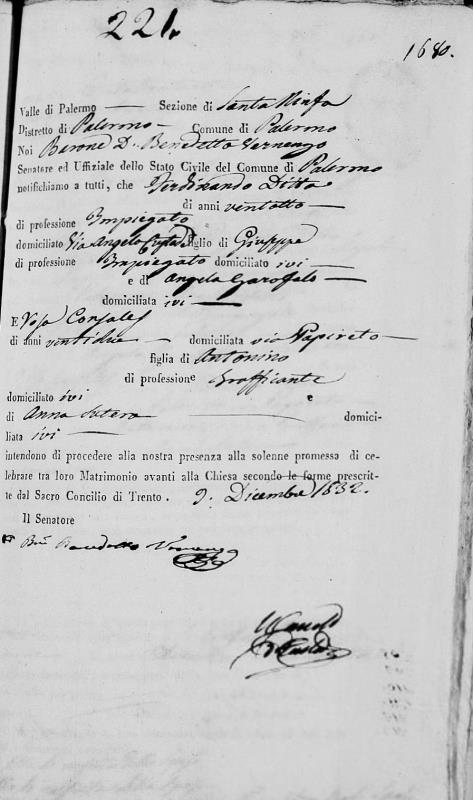 221.
1680.
Valle di Palermo — Sezione di Santa Ninfa
Distretto di Palermo — Comune di Palermo
Noi Barone D. Benedetto Vernengo
Senatore ed Uffiziale dello Stato Civile del Comune di Palermo
notifichiamo a tutti, che Ferdinando Ditta
di anni ventotto —
di professione Impiegato
domiciliato Via Angelo Custode figlio di Giuseppe
di professione Impiegato domiciliato ivi —
e di Angela Garofalo —
domiciliata ivi —
E Rosa Consales
di anni ventidue — domiciliata via Papireto —
figlia di Antonino
di professione Trafficante
domiciliato ivi e
di Anna Sutera — domici-
liata ivi —
intendono di procedere alla nostra presenza alla solenne promessa di ce-
lebrare tra loro Matrimonio avanti alla Chiesa secondo le forme prescrit-
te dal Sacro Concilio di Trento. 9. Dicembre 1832.
Il Senatore
Benedetto Vernengo